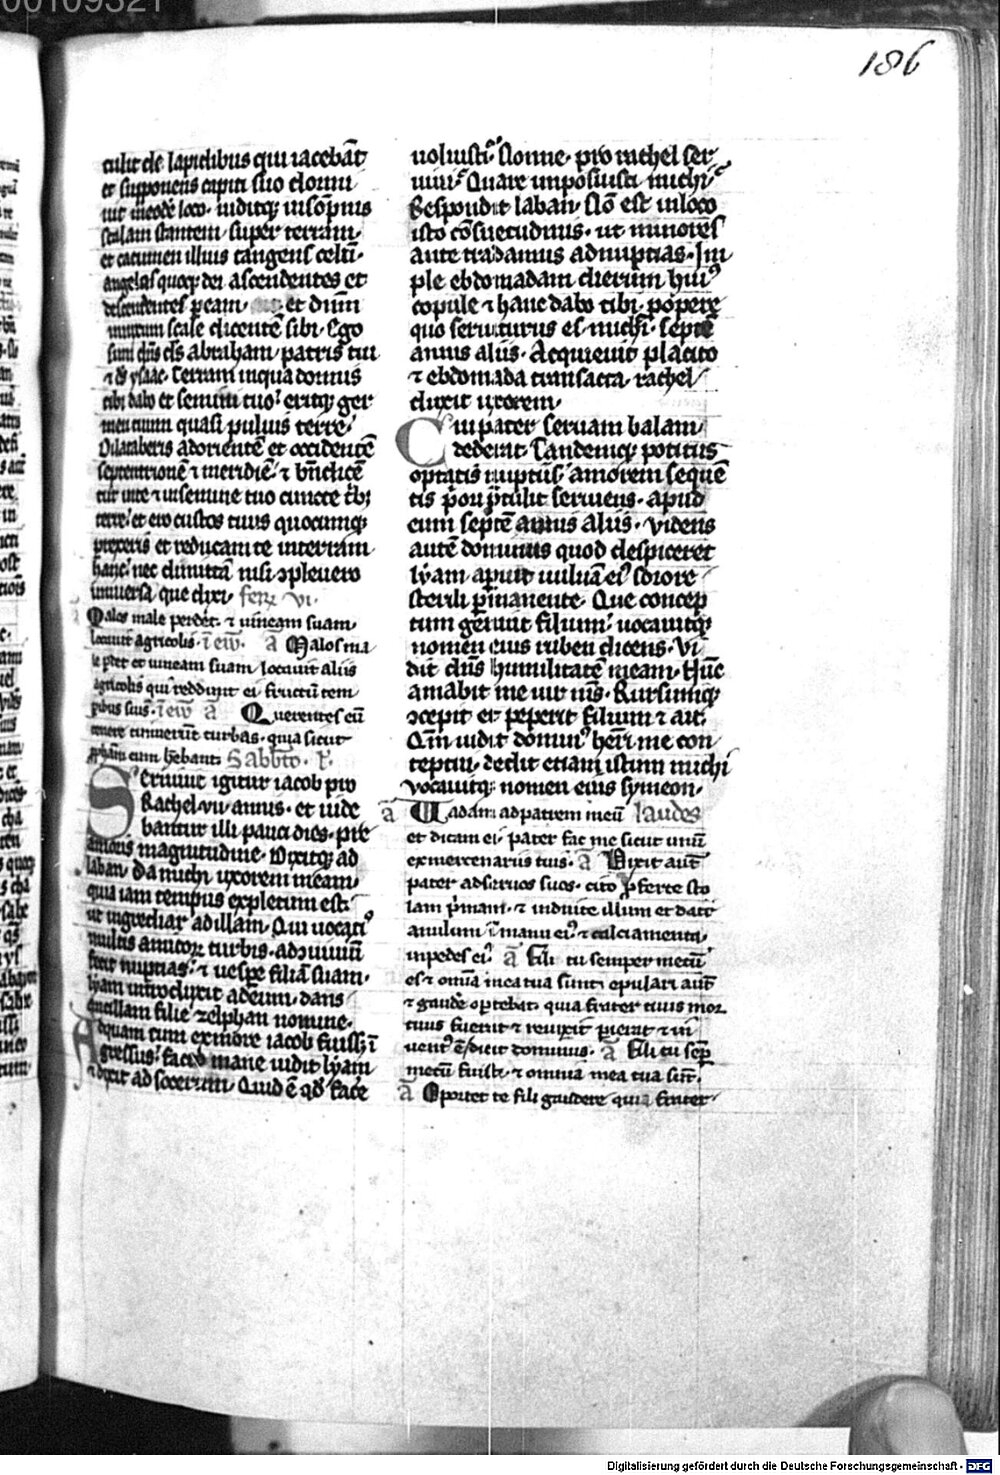 186
tulit de lapidibus qui iacebāt
et supponens capiti suo dormi
uit ineodē loco· uiditqꝫ insōpnis
scalam stantem super terram·
et cacumen illius tangens celū·
angelos quoqꝫ dei ascendentes et
descendentes ꝑ eam· et dn̄m
innixum scale dicentē sibi· Ego
sum dn̄s ds̄ abraham patris tui
⁊ ds̄ ysaac· Terram inqua dormis
tibi dabo et semini tuo· eritqꝫ ger
men tuum quasi puluis terre·
Dilataberis adorientē et occidentē
septentrionē ⁊ meridiē· ⁊ bn̄dicen
tur inte ⁊ insemine tuo cuncte tͥbꝫ
terre· et ero custos tuus quocumqꝫ
ꝑrexeris et reducam te interram
hanc· nec dimittā nisi ɔpleuero
uniuersa que dixi· feria vi·
Malos male perdet· ⁊ uineam suam
locauit agricolis· ī ew̄· ā Malos ma
le ꝑdet et uineam suam locauit aliis
agricolis qui reddunt ei fructū tem
ꝑibus suis· ī ew̄ ā Querentes eū
tenere timuerūt turbas· quia sicut
ꝓpham eum hēbant· Sabbō· R̄·
Seruiuit igitur iacob pro
Rachel· vii annis· et uide
bantur illi pauci dies· pre
amoris magnitudine· Dixitqꝫ ad
laban· Da michi uxorem meam·
quia iam tempus expletum est·
ut ingrediar ad illam· Qui uocatꝭ
multis amicorꝫ turbis· ad ɔuiuiū
fecit nuptias· ⁊ uespe filiā suam·
lyam introduxit ad eum· dans
ancillam filie zelpham nomine·
Ad quam cum ex more iacob fuissꝫ ī
gressus· facto mane uidit lyam
⁊ dixit ad socerum· Quid ē qd̄ face
uoluisti· Nonne· pro rachel ser
uiui· Quare imposuisti michi·
Respondit laban· Nō est inloco
isto cōsuetudinis· ut minores
ante tradamus adnuptias· Im
ple ebdomadam dierum huiꝰ
copule ⁊ hanc dabo tibi· p̄ opere
quo seruiturus es michi· septē
annis aliis· Acquieuit placito
⁊ ebdomada transacta· rachel
duxit uxorem·
Cui pater seruam balam
dederat· Tandemqꝫ potitus
optatis nuptiis· amorem sequē
tis p̄ori p̄tulit seruiens· apud
eum septē annis aliis· Videns
autē dominus quod despiceret
lyam· apuit uuluā eiꝰ sorore
sterili ꝑmanente· Que concep
tum genuit filium· uocauitqꝫ
nomen eius ruben dicens· Vi
dit dn̄s humilitatē meam· Nūc
amabit me uir mꝰs· Rursumqꝫ
ɔcepit et peperit filium ⁊ ait·
Qm̄ uidit dominꝰ hēri me con
temptui· dedit etiam istum michi
vocauitqꝫ nomen eius symeon·
ā Vadam ad patrem meū laudes
et dicam ei· pater fac me sicut unū
ex mercenariis tuis· ā Dixit aut̄
pater ad seruos suos· cito ꝓferte sto
lam p̄mam· ⁊ induite illum et date
anulum ī manu eiꝰ ⁊ calciamenta
inpedes eiꝰ ā Fili tu semper mecū
es ⁊ omīa mea tua sunt· epulari aut̄
⁊ gaudē oꝑtebat· quia frater tuus mor
tuus fuerat ⁊ reuixit ꝑierat ⁊ in
uentꝰ ē dicit dominus· ā Fili tu semꝑ
mecū fuisti· ⁊ omnia mea tua sūt·
ā Oportet te fili gaudere quia frater
Digitalisierung gefördert durch die Deutsche Forschungsgemeinschaft - DFG